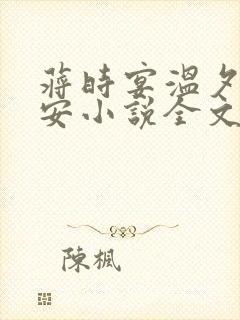 蔣時宴溫夕
安小說全文
陳楓